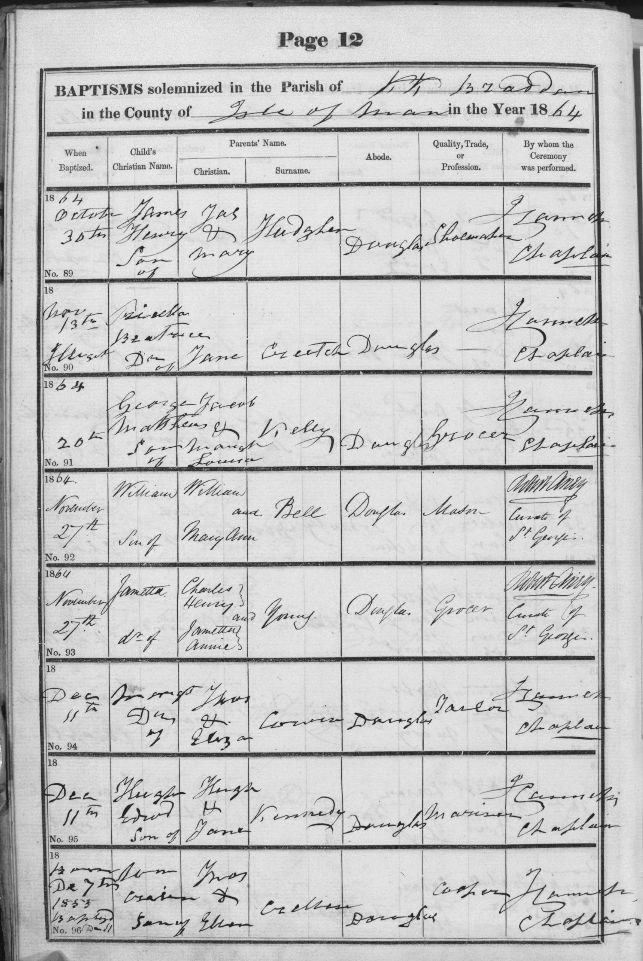 Page 12
BAPTISMS solemnized in the Parish of Kk Braddan
in the County of Isle of Man in the Year 1864
When Baptized.
Child's Christian Name.
Parents' Name.
Christian.
Surname.
Abode.
Quality, Trade, or Profession.
By whom the Ceremony was performed.
1864
October James Jas
30th Henry & Hudghen Douglas Shoemaker
Son of Mary Chaplain
No. 89
18
Nov 13th
Beatrice
Illegit Dau of Jane Creetch Douglas — Chaplain
No. 90
1864
George Jacob
20th Matthew & Kelly Douglas Grocer
Son of Louisa Chaplain
No. 91
1864.
November William William
27th and Bell Douglas Mason Curate of
Son of Mary Ann St Georges.
No. 92
1864
November Jametta Charles
27th Henry and Young Douglas Grocer Curate of
dr of Jametta St Georges.
Annie
No. 93
18
Dec Margt Thos
11th Dau & Corwin Douglas Tailor
of Eliza Chaplain
No. 94
18
Dec Hugh Hugh
11th Edwd & Kennedy Douglas Mariner
Son of Jane Chaplain
No. 95
18
Born Thos
De 7th &
1853 Cooper
Bapd Son of Ellen Douglas
Dec 11 Chaplain
No. 96